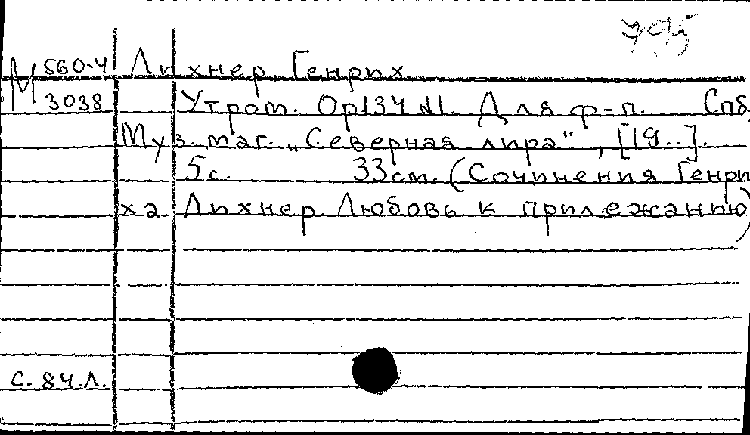 М 560-4 Лихнер Генрих
3038 Утром. Op134 N1. Для ф-п. Спб,
Муз. маг. „Северная лира", [19..].
5с. 33см. (Сочинения Генри
ха Лихнер Любовь к прилежанию)
с. 84.л.